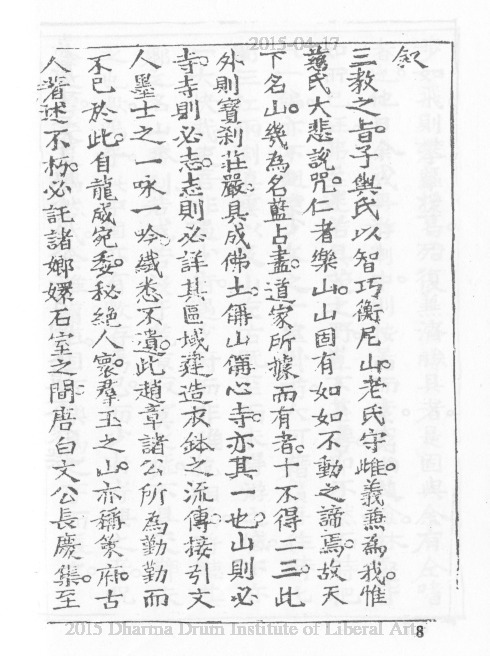 2015-04-17
叙
三教之旨子輿氏以智巧衡尼山老氏守雌義無為我惟
舊氏大悲說咒仁者樂山山固有如如不動之諦焉故天
下名山幾為名藍占盡道家所據而有者十不得二三此
外則寶剎莊嚴具成佛土俑山俑心寺亦其一也山則必
寺寺則必志志則必詳其區域建造衣鉢之流傳接引文
人墨士之一咏一吟纖悉不遺此趙章諸公所為勤勤而
不已於此自龍威宛委秘絕人寰羣玉之山亦稱策府古
人著述不朽必託諸嫏嬛石室之間唐白文公長慶集至
2015 Dharma Drum Institute of Liberal Arts
8